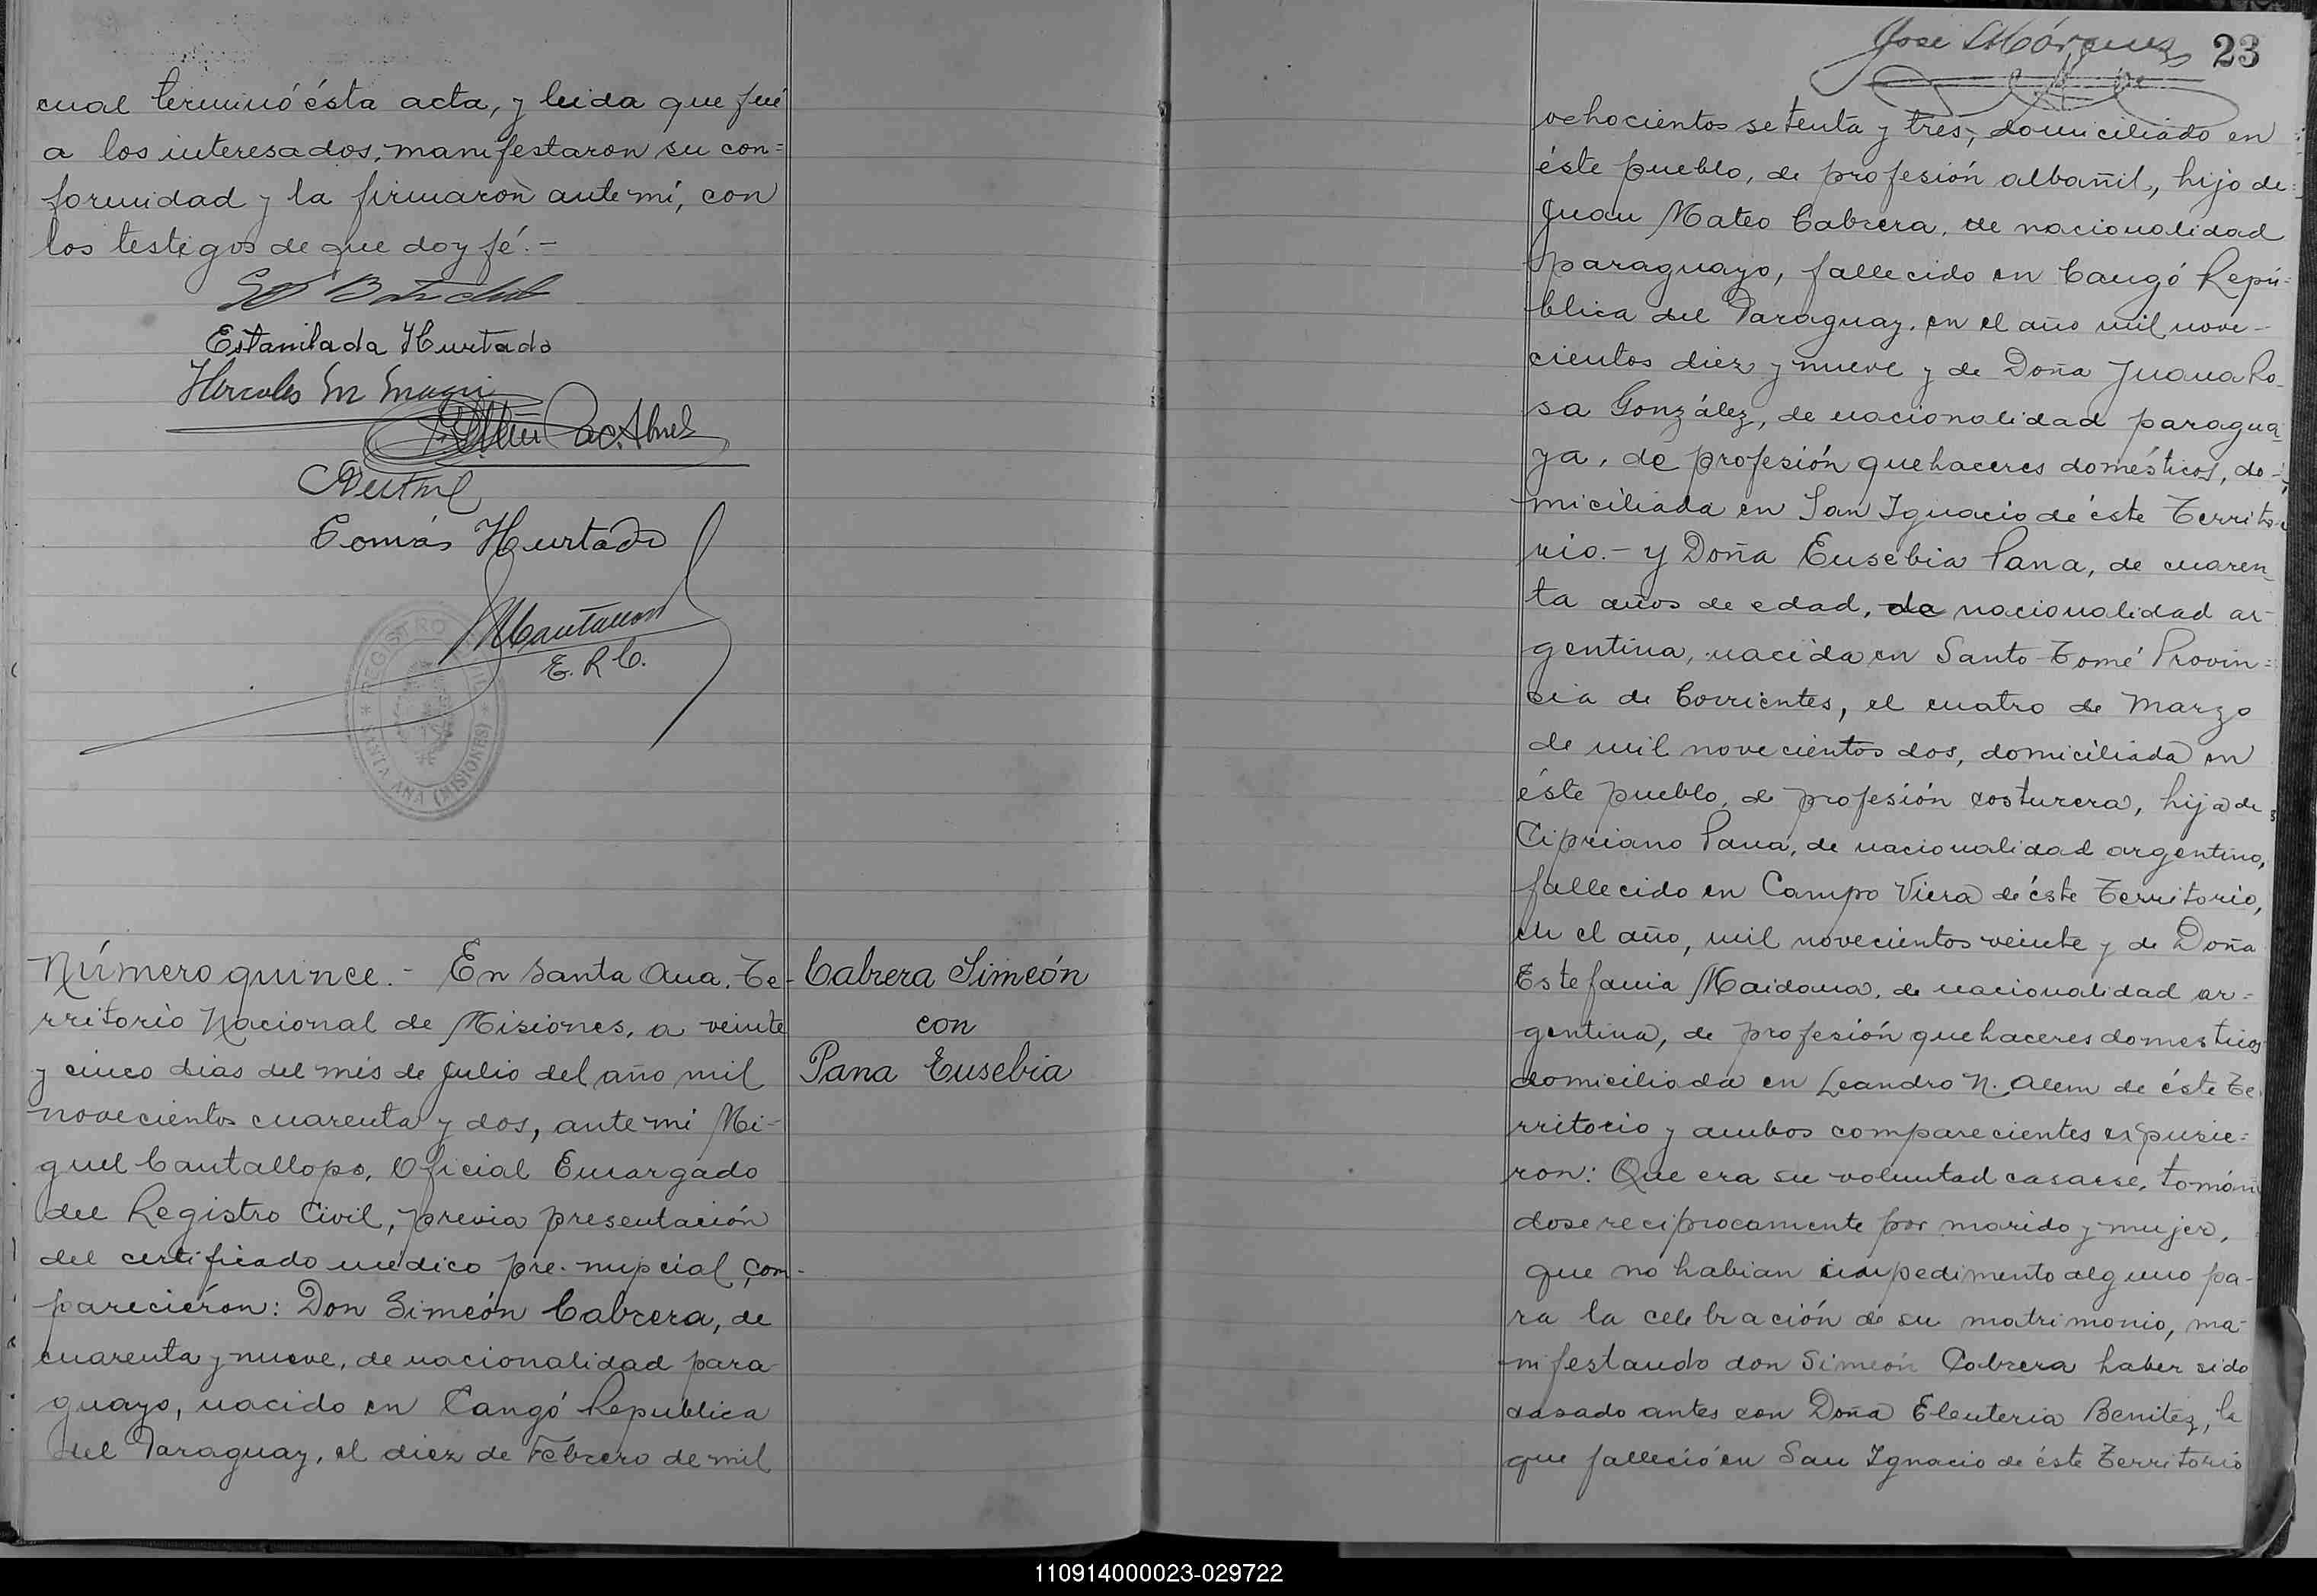 cual terminó ésta acta, y leida que fué
a los interesados, manifestaron su con=
formidad y la firmaron ante mí, con
los testigos de que doy fé.-
Estanilada Hurtado
Hércules M
Tomás Hurtado
E. R. C.
REGISTRO CIVIL * SANTA ANA (MISIONES) *
Número quince.- En Santa Ana, Te-
rritorio Nacional de Misiones, a veinte
y cinco dias del més de Julio del año mil
novecientos cuarenta y dos, ante mí Mi-
guel Cantallops, Oficial Encargado
del Registro Civil, previa presentación
del certificado médico pre-nupcial, com-
parecierón: Don Simeón Cabrera, de
cuarenta y nueve, de nacionalidad para-
guayo, nacido en Cangó República
del Paraguay, el diez de Febrero de mil
Cabrera Simeón
con
Pana Eusebia
José Márquez
23
ochocientos setenta y tres, domiciliado en
éste pueblo, de profesión albañil, hijo de
Juan Mateo Cabrera, de nacionalidad
paraguayo, fallecido en Cangó Repú=
blica del Paraguay, en el año mil nove-
cientos diez y nueve y de Doña Juana Ro-
sa González, de nacionalidad paragua-
ya, de profesión quehaceres domésticos, do-
miciliada en San Ignacio de éste Territo
rio.- y Doña Eusebia Pana, de cuaren-
ta años de edad, de nacionalidad ar-
gentina, nacida en Santo Tomé Provin=
cia de Corrientes, el cuatro de Marzo
de mil novecientos dos, domiciliada en
éste pueblo, de profesión costurera, hija de
Cipriano Pana, de nacionalidad argentino,
fallecido en Campo Viera de éste Territorio,
en el año, mil novecientos veinte y de Doña
Estefania Maidana, de nacionalidad ar-
gentina, de profesión quehaceres domesticos
domiciliada en Leandro N. Alem de éste Te
rritorio y ambos comparecientes expusie=
ron: Que era su voluntad casarse, tomán
dose reciprocamente por marido y mujer,
que no habian impedimento alguno pa-
ra la celebración de su matrimonio, ma-
nifestando don Simeón Cabrera haber sido
casado antes con Doña Eleuteria Benitez, la
que falleció en San Ignacio de éste Territorio
110914000023-029722